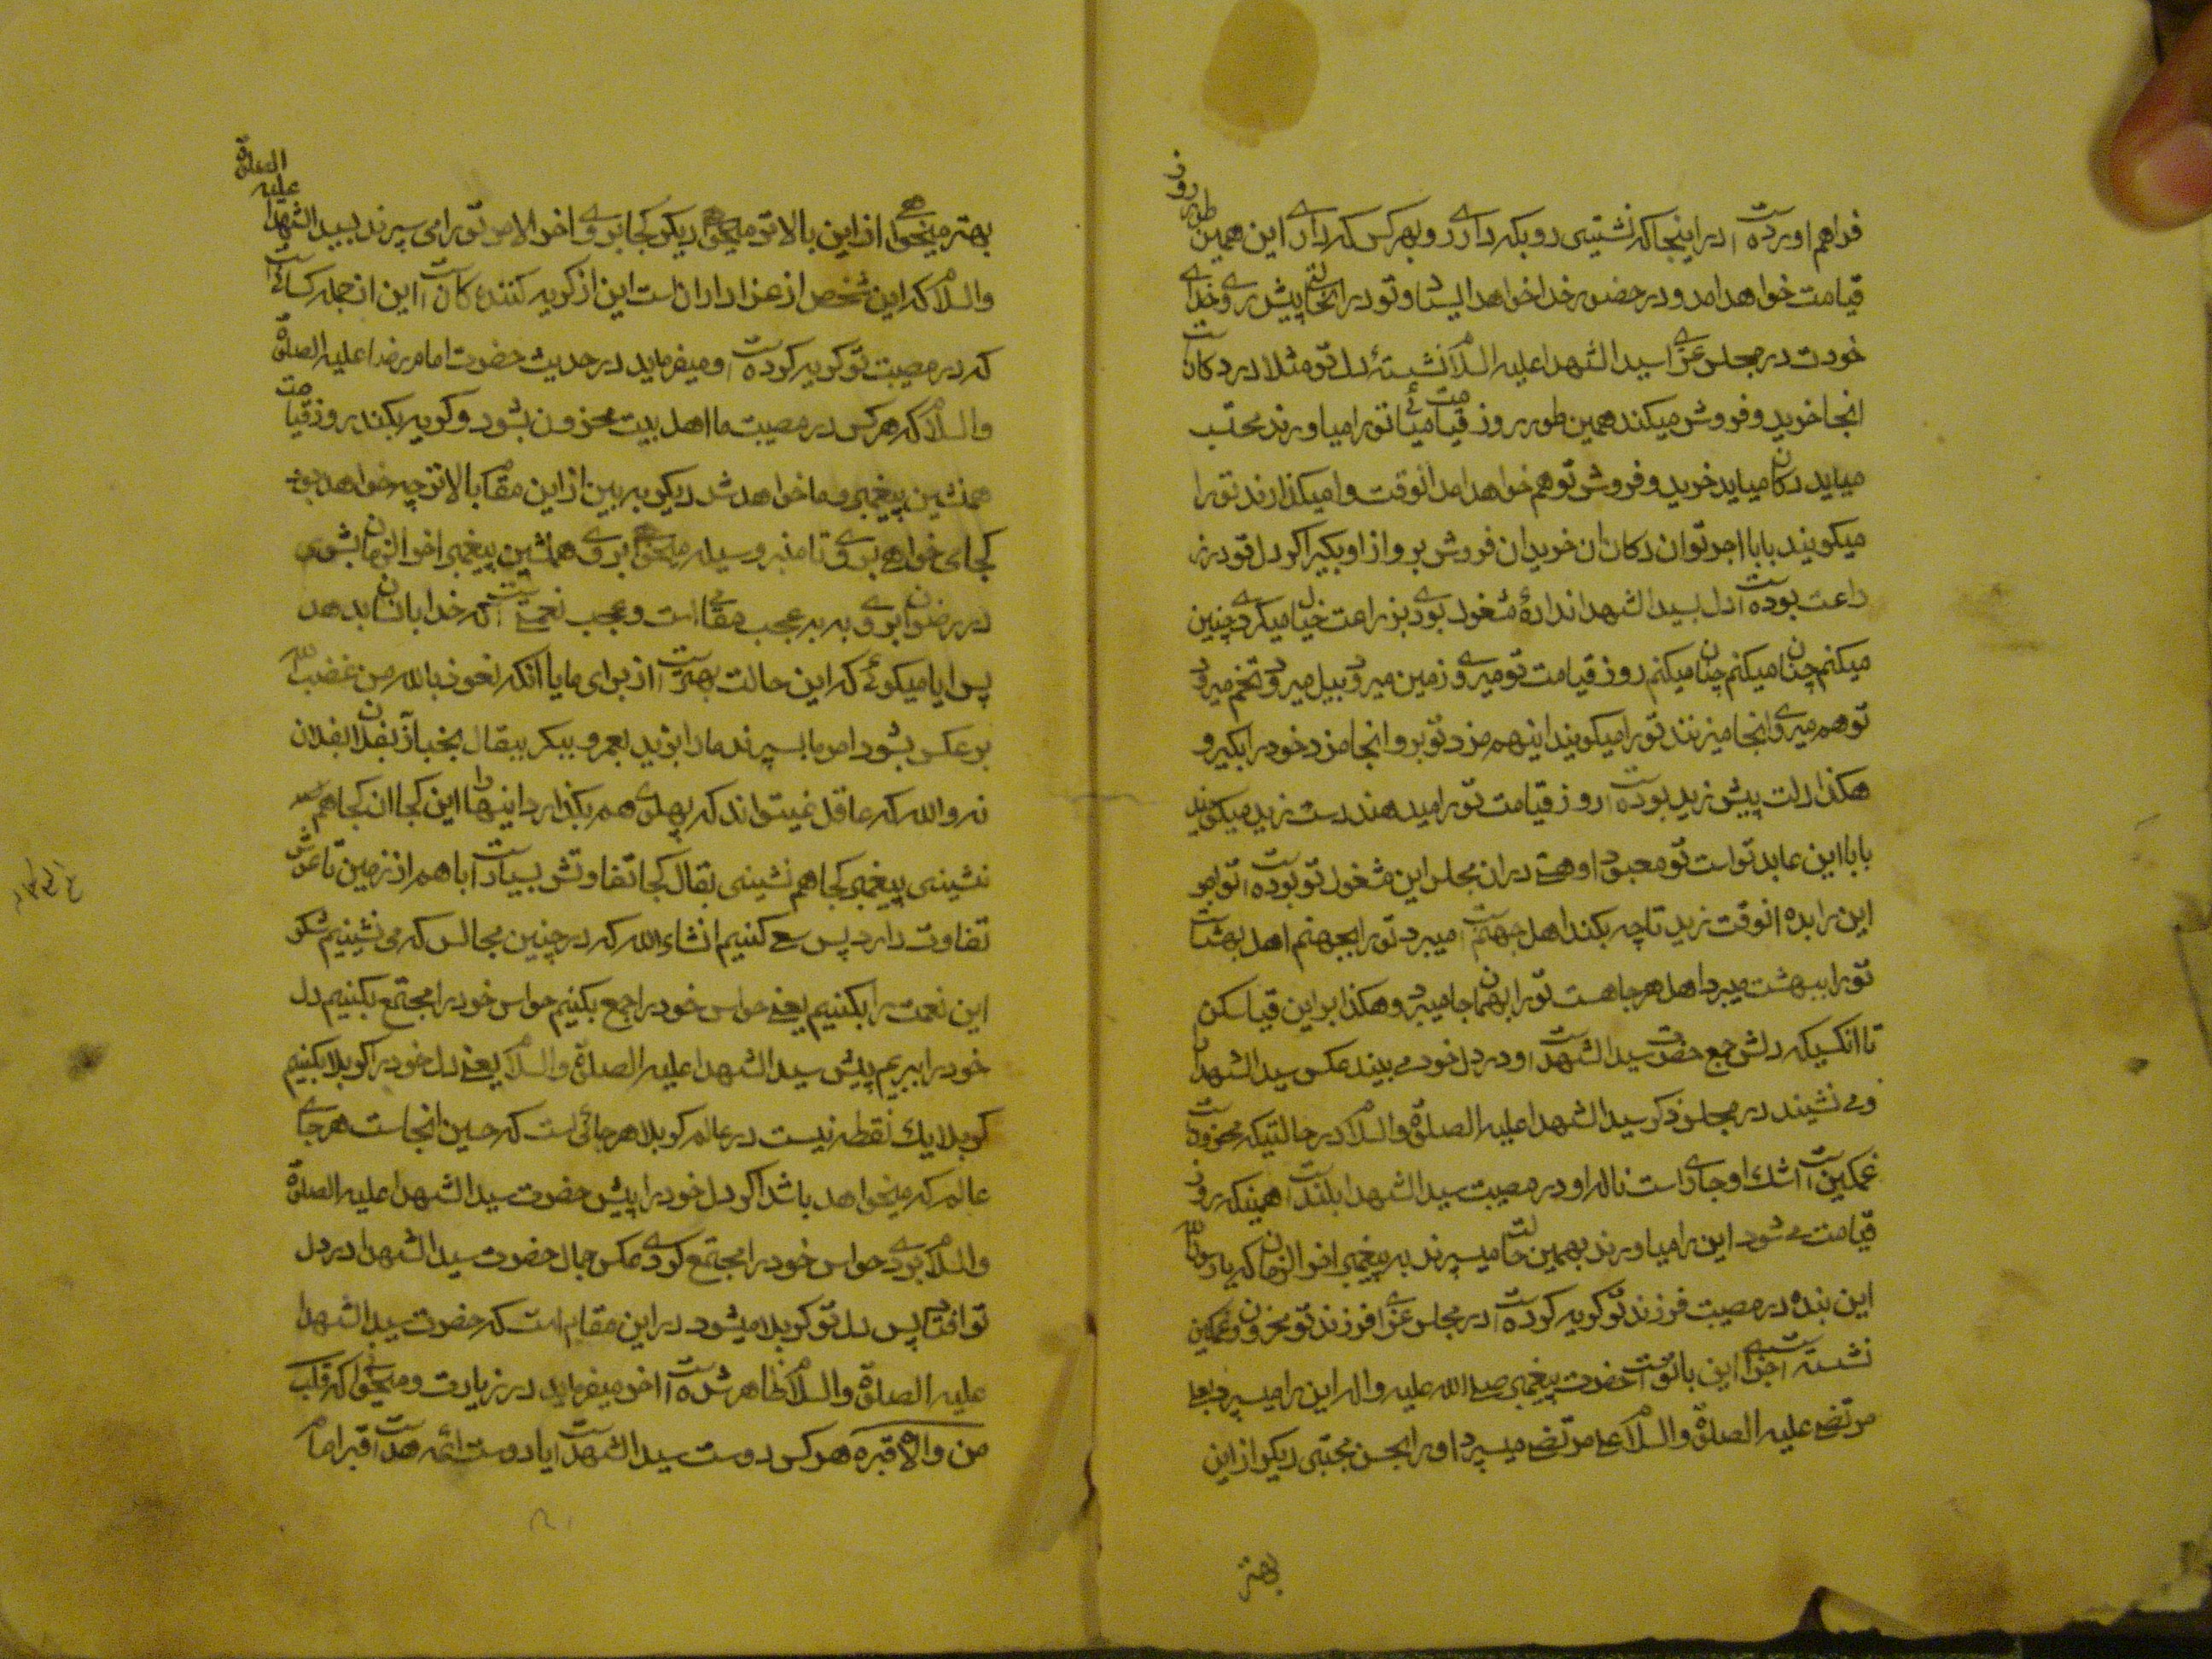 فراهم اورده است در اینجا که نشستی رو بکه داری رو بهر کس که داری این همین طور روز
قیامت خواهد امد و در حضور خدا خواهد ایستاد و تو در انحالت پیش روی خدای
خودت در مجلس عزای سید الشهدا علیه السلام نشستهٔ دل تو مثلا در دکانست
انجا خرید و فروش میکند همین طور روز قیامت میائی تو را میاورند محتسب
میاید دکان میاید خرید و فروش تو هم خواهد امد انوقت وامیگذارند تو را
میگویند بابا اجر توان دکان ان خرید ان فروش برو از او بگیر اگر دل تو در ز
راعت بوده است دل بسید الشهدا ندادهٔ مشغول بودی بزراعت خیال میکردی چنین
میکنم چنان میکنم چنان میکنم روز قیامت تو میروی زمین میرود بیل میرود تخم میرود
تو هم میروی انجا میزنند تو را میگویند اینهم مزد تو برو انجا مزد خود را بگیر و
هکذا دلت پیش زید بوده است روز قیامت تو را میدهند دست زید میگویند
بابا این عابد تو است تو معبود او هستی در ان مجلس این مشغول تو بوده است تو اجر
این را بده انوقت زید تا چه بکند اهل جهنم است میبرد تو را بجهنم اهل بهشت است
تو را ببهشت میبرد اهل هر جا هست تو را بهمان جا میبرد و هکذا بر این قیاس کن
تا انکسیکه دلش جمع حضرت سید الشهداست او در دل خود می بیند عکس سید الشهدا را
و می نشیند در مجلس ذکر سید الشهدا علیه الصلوة والسلام در حالتیکه محزونست
غمگین است اشک او جاری است ناله او در مصیبت سید الشهدا بلند است همینکه روز
قیامت می شود این را میاورند بهمین حالت میسپرند به پیغمبر اخر الزمان که یا رسول الله
این بنده در مصیبت فرزند تو گریه کرده است در مجلس عزای فرزند تو محزون و غمگین
نشسته است اجرای این با تو است حضرت پیغمبر صلی الله علیه واله این را میسپرد بعلی
مرتضی علیه الصلوة والسلام علی مرتضی میسپرد او را بحسن مجتبی دیگر از این
بهتر
بهتر میخواهی از این بالاتر میخواهی دیگر کجا بروی اخر الامر تو را می سپرند بسید الشهدا علیه الصلوة
والسلام که این شخص از عزاداران است این از گریه کنندگان است این از جمله کسانی است
که در مصیبت تو گریه کرده است و میفرماید در حدیث حضرت امام رضا علیه الصلوة
والسلام که هر کس در مصیبت ما اهل بیت محزون بشود و گریه بکند روز قیامت
همنشین پیغمبر و ما خواهد شد دیگر به بین از این مقام بالاتر چه خواهد بود
کجای خواهی بروی تا منبر وسیله میخواهی بروی همنشین پیغمبر اخر الزمان بشوی
در رضوان بروی به به عجب مقامی است و عجب نعمتی است که خدا بانسان بدهد
پس ایا میگوئی که این حالت بهتر است از برای ما یا انکه نعوذ بالله من غضب الله
بر عکس بشود امر ما بسپرند ما را بزید بعمرو ببکر ببقال بخباز بفلان بفلان
نه والله که عاقل نمیتواند که پهلوی هم بگذارد اینها را این کجا ان کجا هم
نشینی پیغمبر کجا هم نشینی بقال کجا تفاوتش بسیار است با هم از زمین تا عرش
تفاوت دارد پس سعی کنیم انشاء الله که در چنین مجالس که می نشینیم شکر
این نعمت را بکنیم یعنی حواس خود را جمع بکنیم حواس خود را مجتمع بکنیم دل
خود را ببریم پیش سید الشهدا علیه الصلوة والسلام یعنی دل خود را کربلا بکنیم
کربلا یک نقطه نیست در عالم کربلا هر جائی است که حسین انجاست هر جای
عالم که میخواهد باشد اگر دل خود را پیش حضرت سید الشهدا علیه الصلوة
والسلام بردی حواس خود را مجتمع کردی عکس جمال حضرت سید الشهدا در دل
تو افتاد پس دل تو کربلا میشود در این مقام است که حضرت سید الشهدا
علیه الصلوة والسلام ظاهر شده است اخر میفرماید در زیارت و میخوانی که قلب
من والاه قبره هر کس دوست سید الشهداست یا دوست ائمه هداست قبر امام